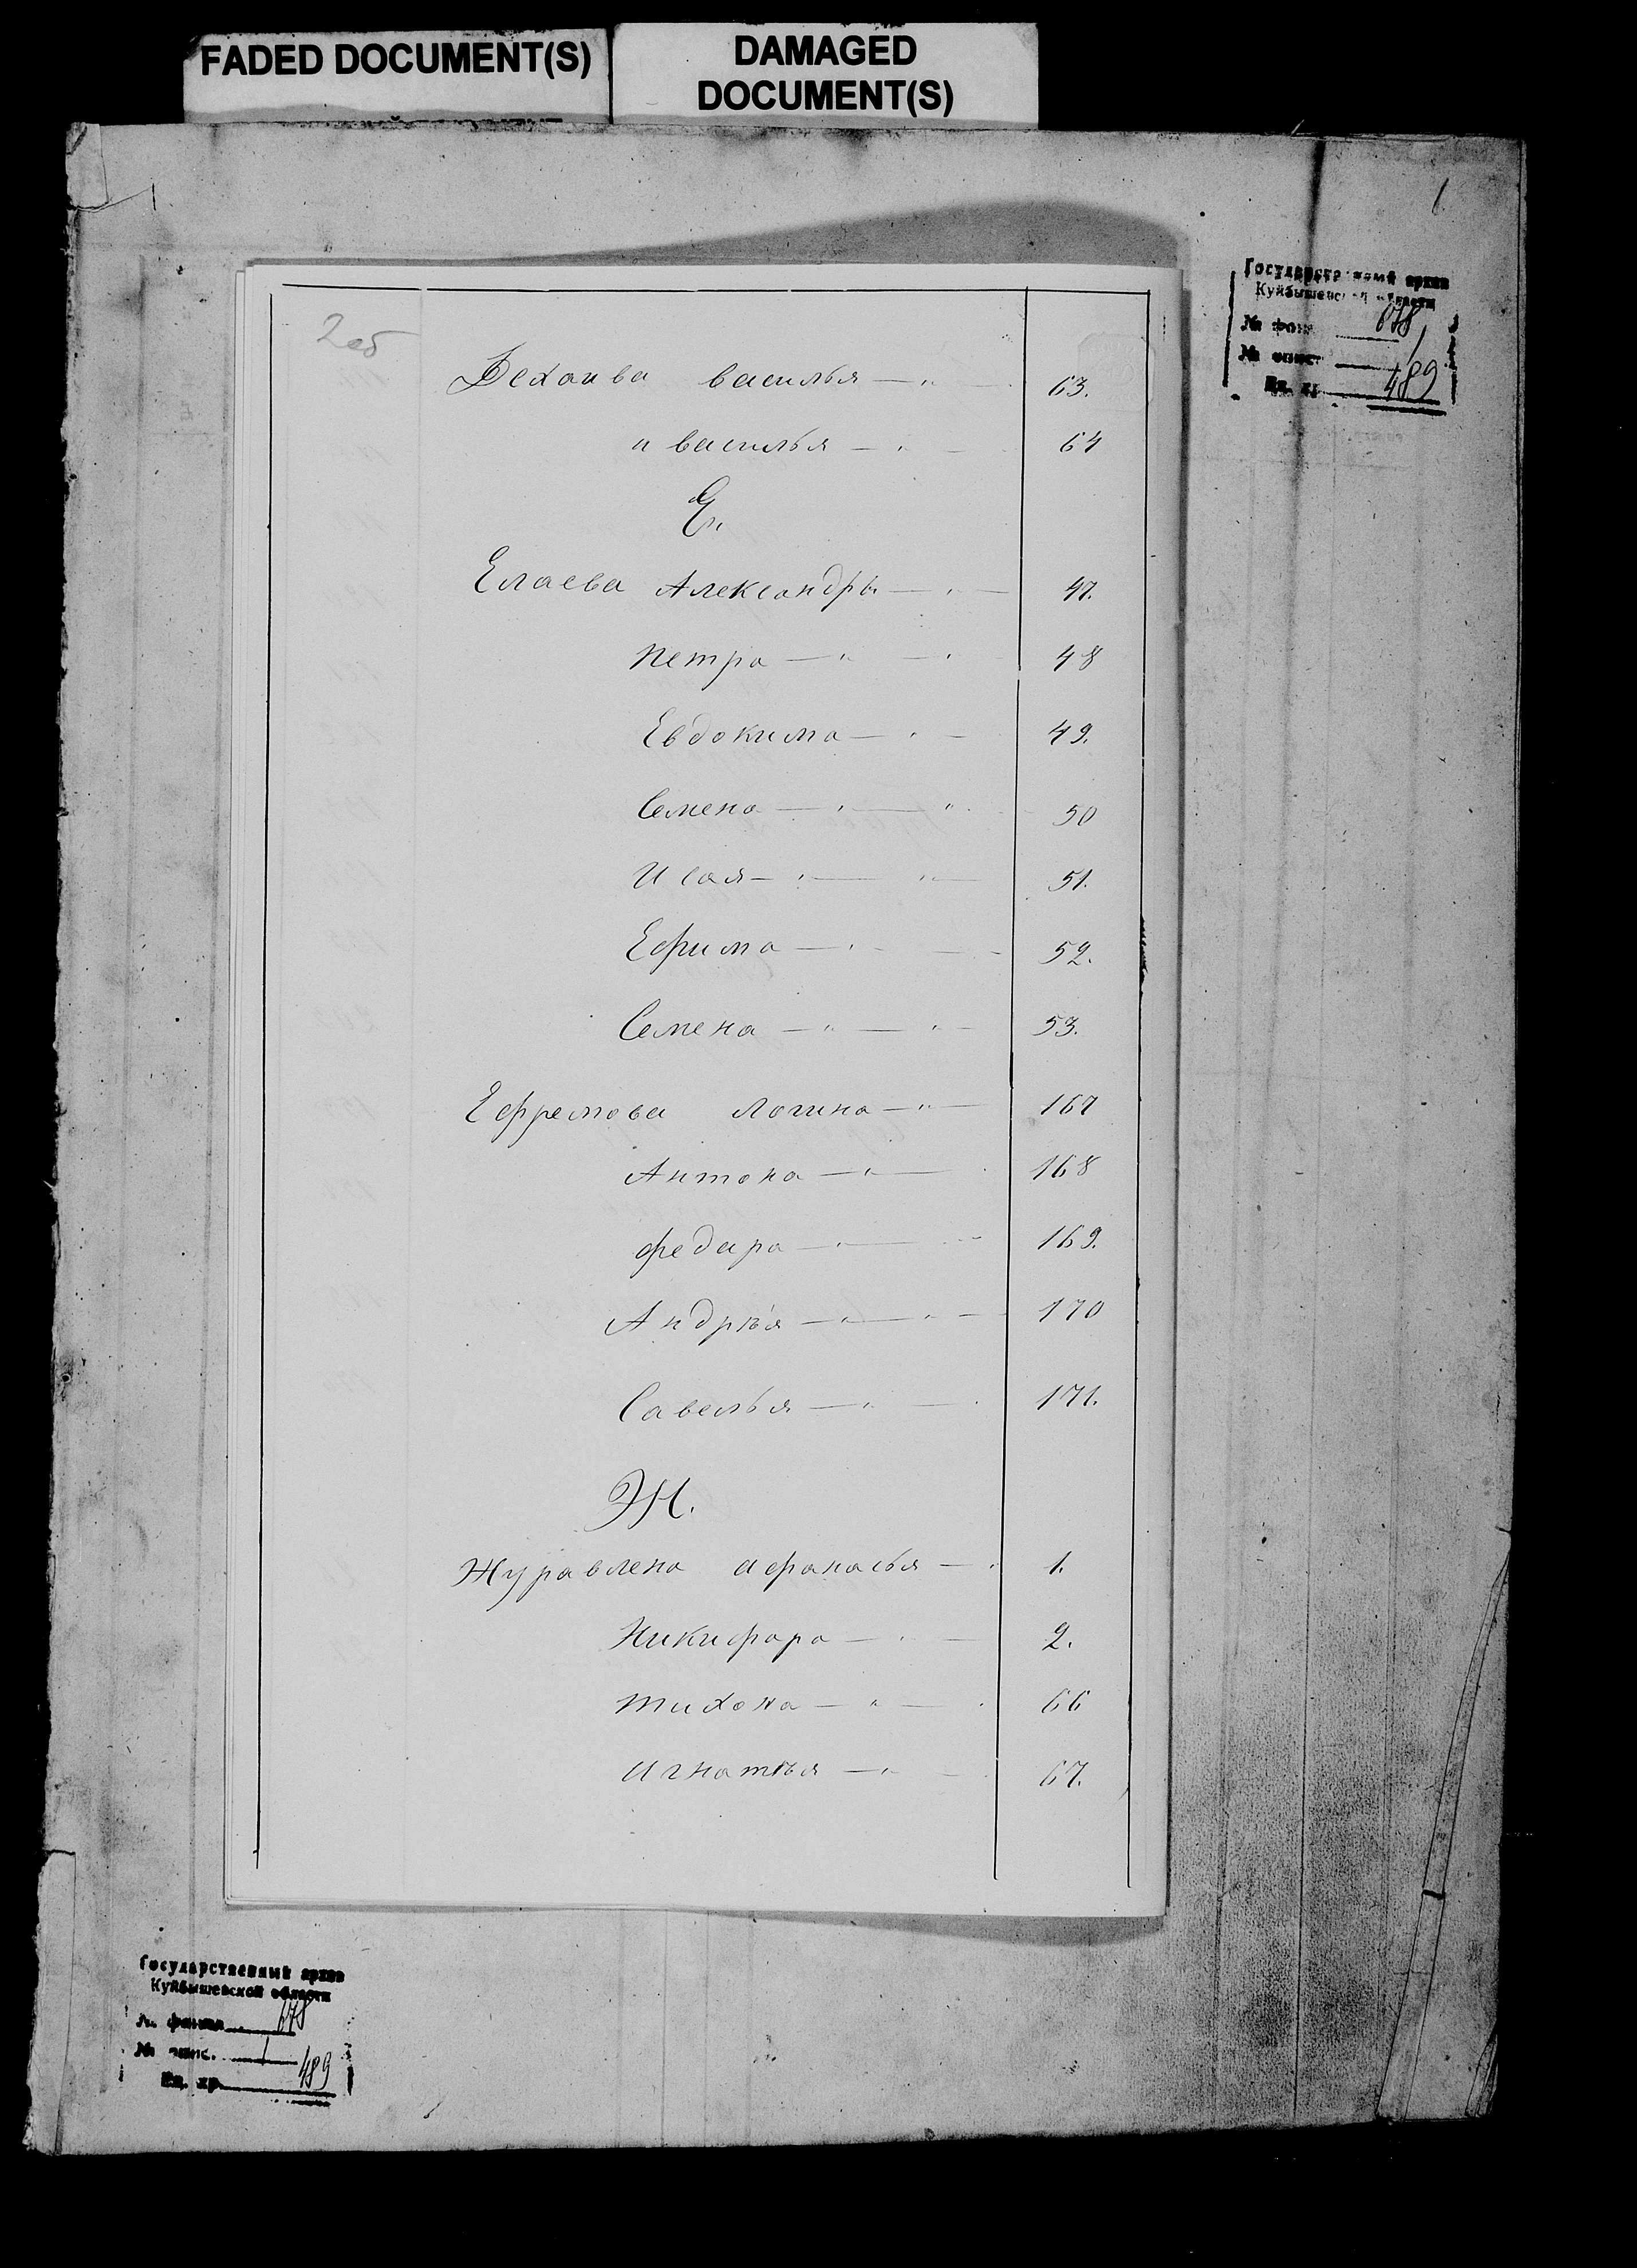 FADED DOCUMENT(S)
DAMAGED
DOCUMENT(S)
Государственный архив
Куйбышевской области
№ фонд 678
№ опис. 1
Ед. хр. 489
2об
Деханва василья — " 63.
и василья — " — 64
Е.
Елаева Александры — " — 47.
Петра — " — " — 48
Евдокима — " — 49.
Семена — " — " 50
Исая — " — " — 51.
Ефима — " — 52.
Семена — " — " — 53.
Ефремова Логина — " — 167
Антона — " — 168
федара — " — 169.
Андрѣя — " — " — 170
Савелья — " — 171.
Ж.
Журавлена Афанасья — " 1.
Никифара — " — 2.
тихона — " — 66
Игнатья — " — 67.
Государственный архив
Куйбышевской области
№ фонда 678
№ опис. 1
Ед. хр. 489